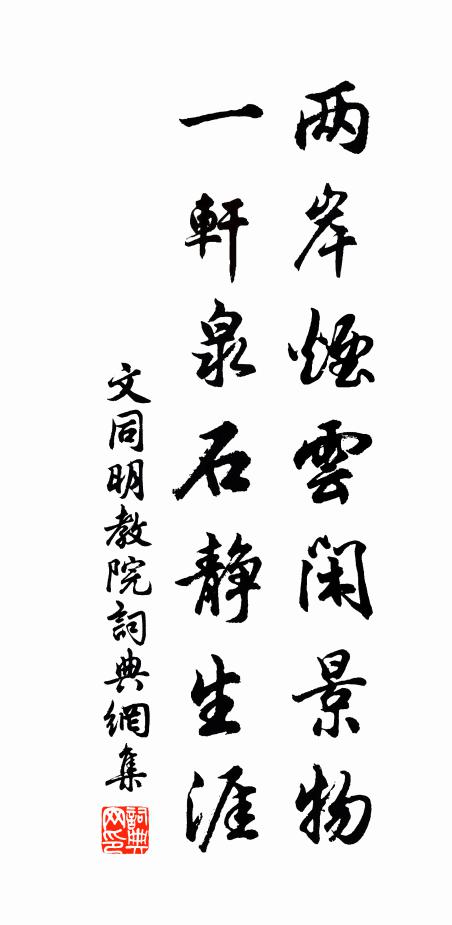 两岸煙雲閑景物
一軒泉石静生涯
文同明教院詞典網集
詞典网印